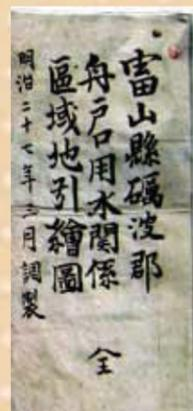 富山縣礪波郡
舟戸口用水関係
區域地引繪圖
明治二十七年三月調製
全